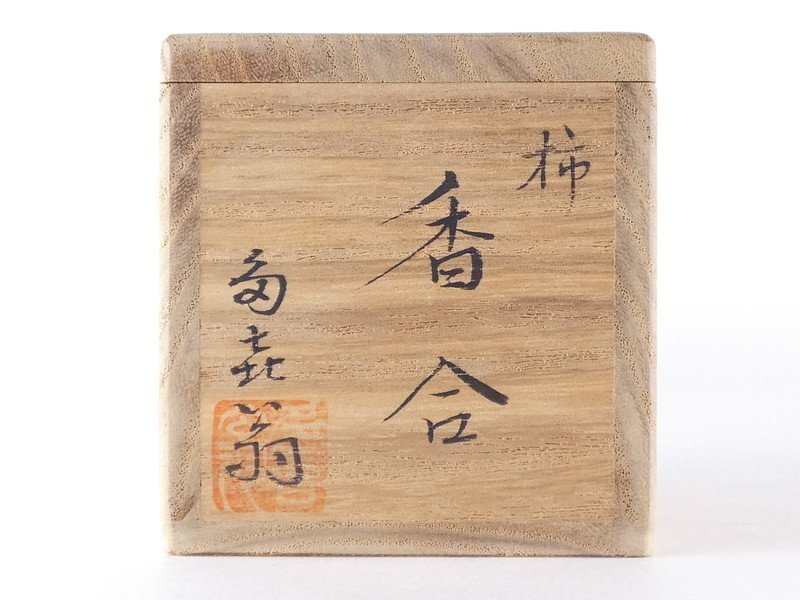 柿
香合
夛㐂翁